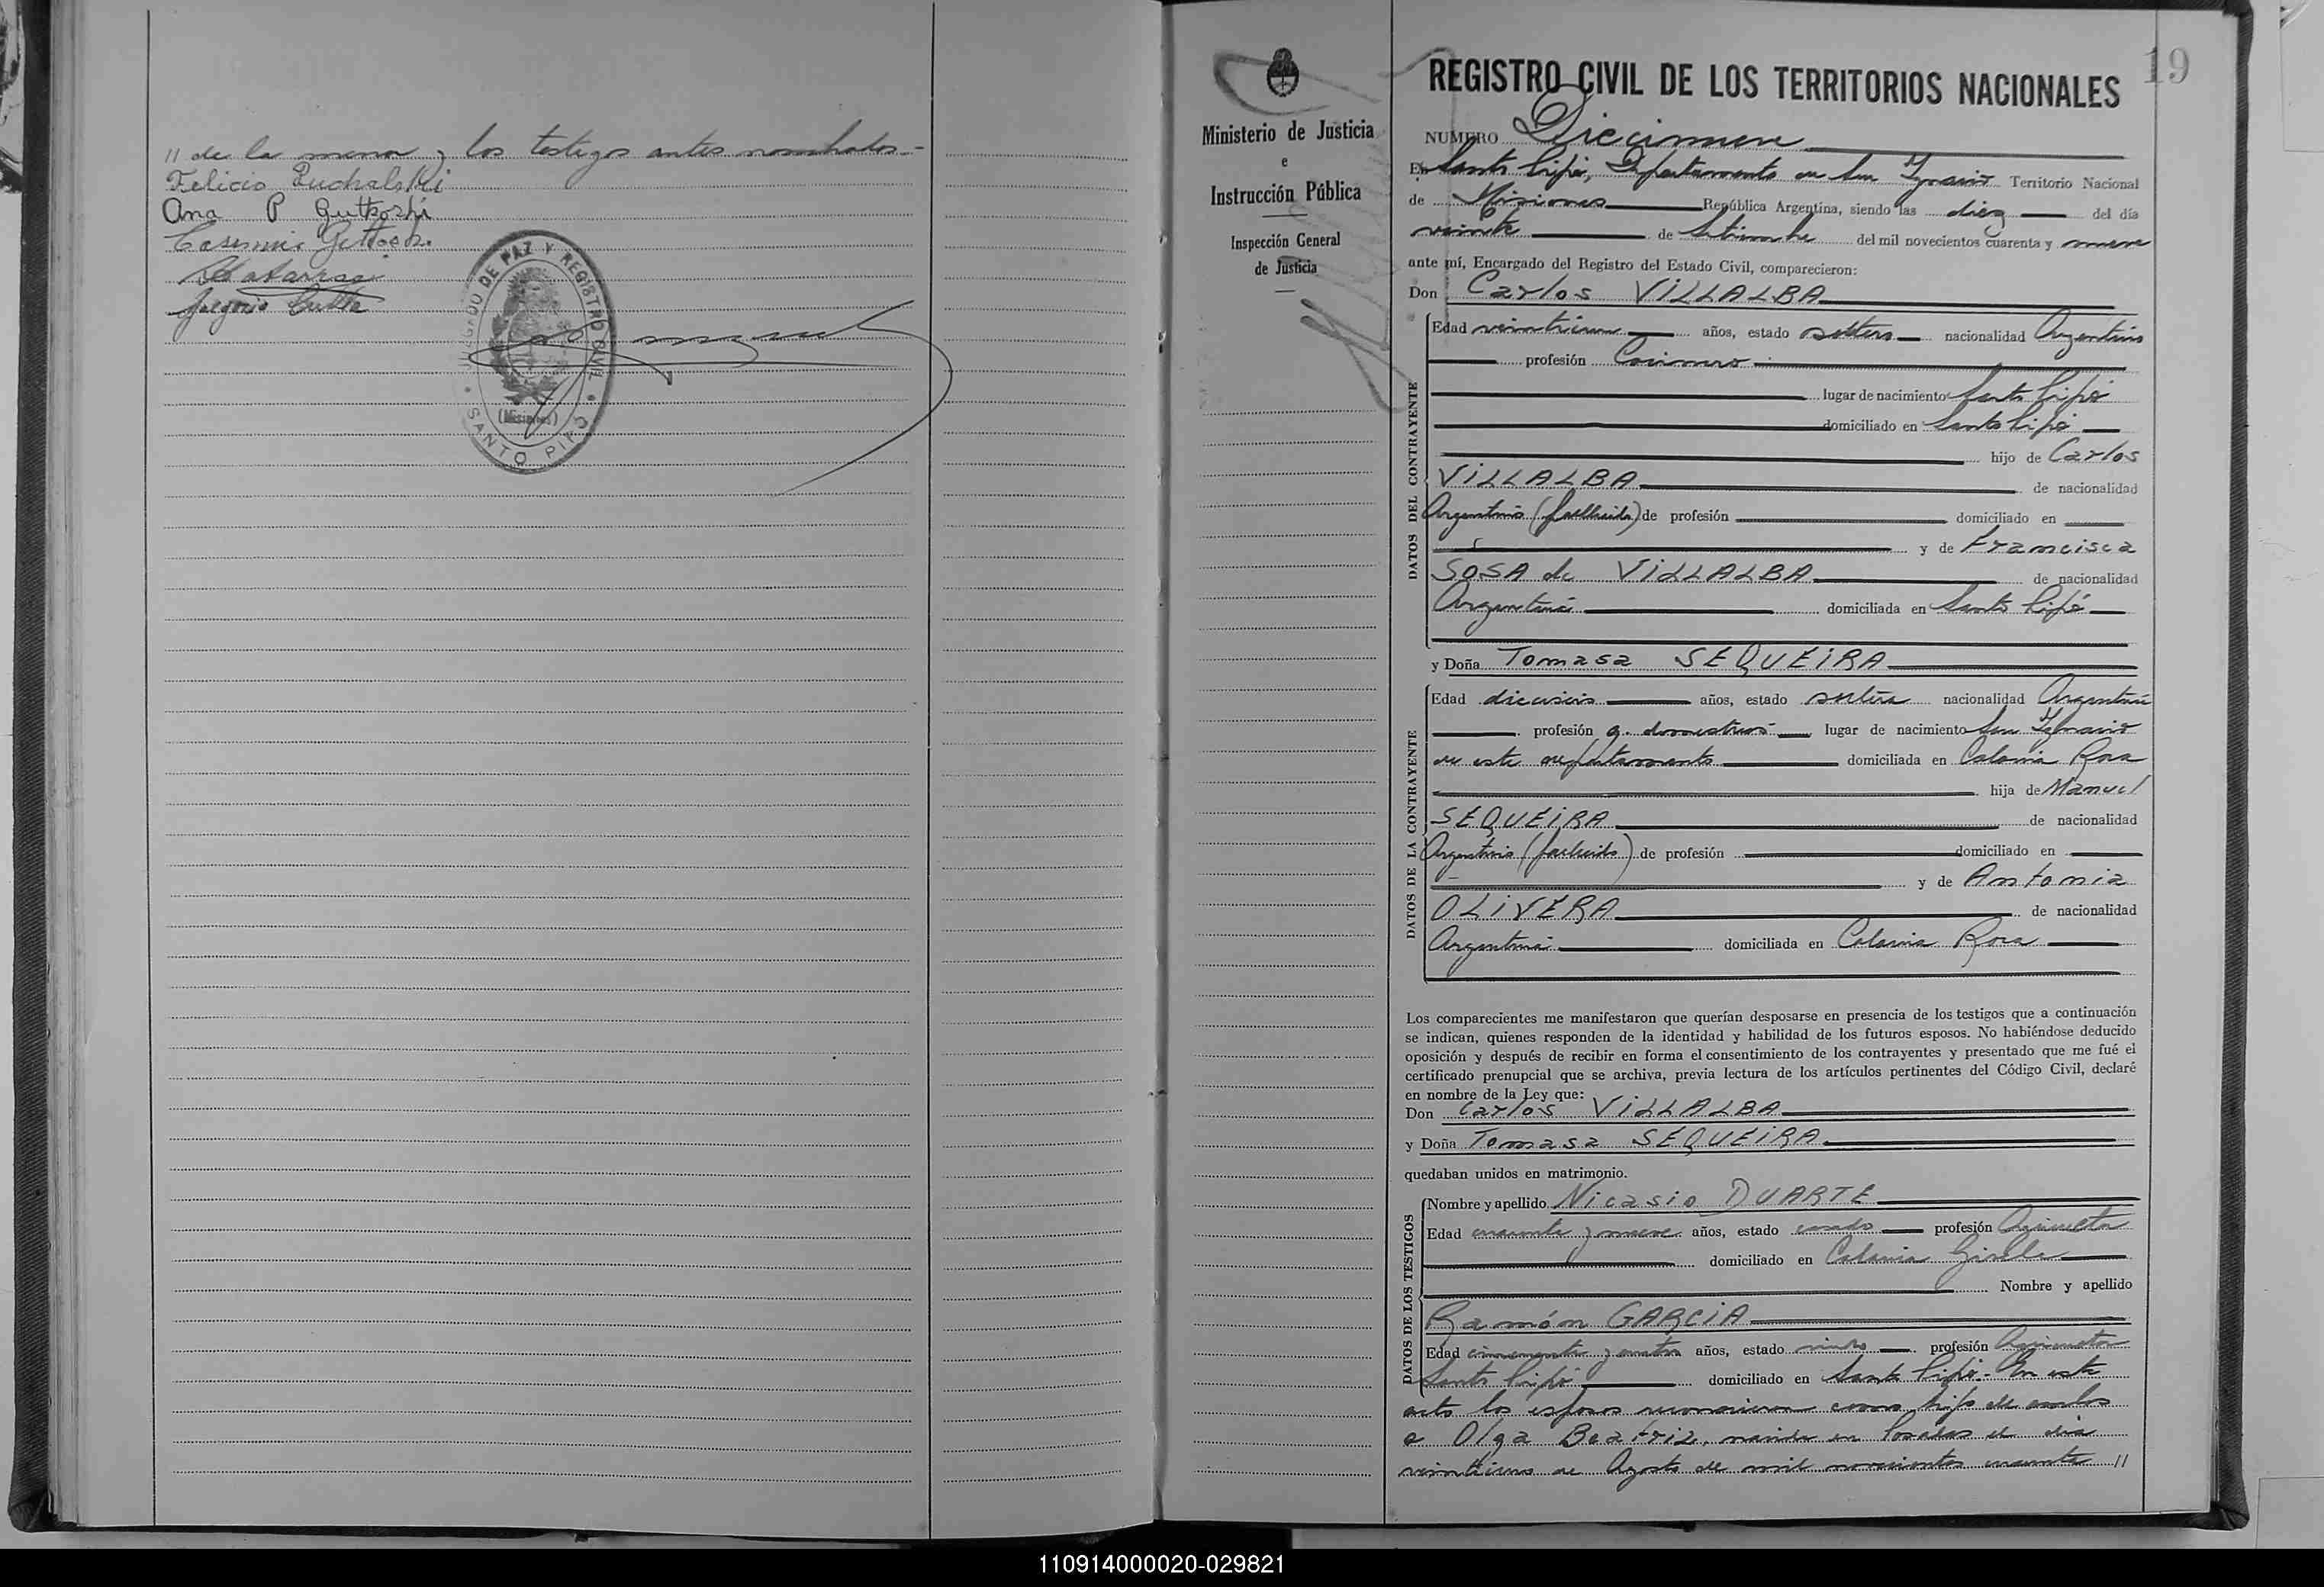 " de la menor y los testigos antes nombrados.-
Felicio Puchalski
Ana P Gutkoski
JUZGADO DE PAZ Y REGISTRO CIVIL
(Misiones)
SANTO PIPO
19
Ministerio de Justicia
e
Instrucción Pública
Inspección General
de Justicia
REGISTRO CIVIL DE LOS TERRITORIOS NACIONALES
NUMERO Diecinueve
En Santo Pipó, Departamento de San Ignacio Territorio Nacional
de Misiones República Argentina, siendo las diez del día
veinte de Setiembre del mil novecientos cuarenta y nueve
ante mí, Encargado del Registro del Estado Civil, comparecieron:
Don Carlos VILLALBA
DATOS DEL CONTRAYENTE
Edad años, estado soltero nacionalidad Argentino
profesión
lugar de nacimiento Santo Pipó
domiciliado en Santo Pipó
hijo de Carlos
VILLALBA de nacionalidad
Argentina (fallecido) de profesión domiciliado en
y de Francisca
SOSA de VILLALBA de nacionalidad
Argentina domiciliada en Santo Pipó
y Doña Tomasa SEQUEIRA
DATOS DE LA CONTRAYENTE
Edad dieciseis años, estado soltera nacionalidad Argentina
profesión q. domésticos lugar de nacimiento San Ignacio
de este departamento domiciliada en Colonia Roca
hija de Manuel
SEQUEIRA de nacionalidad
Argentina (fallecido) de profesión domiciliado en
y de Antonia
OLIVERA de nacionalidad
Argentina domiciliada en Colonia Roca
Los comparecientes me manifestaron que querían desposarse en presencia de los testigos que a continuación
se indican, quienes responden de la identidad y habilidad de los futuros esposos. No habiéndose deducido
oposición y después de recibir en forma el consentimiento de los contrayentes y presentado que me fué el
certificado prenupcial que se archiva, previa lectura de los artículos pertinentes del Código Civil, declaré
en nombre de la Ley que:
Don Carlos VILLALBA
y Doña Tomasa SEQUEIRA
quedaban unidos en matrimonio.
DATOS DE LOS TESTIGOS
Nombre y apellido Nicasio DUARTE
Edad cuarenta y nueve años, estado casado profesión Agricultor
domiciliado en Colonia Giselle
Nombre y apellido
Ramón GARCIA
Edad cincuenta y cuatro años, estado viudo profesión Agricultor
Santo Pipó domiciliado en Santo Pipó.- En este
acto los esposos reconocieron como hija de ambos
a Olga Beatriz, nacida en Posadas el dia
de Agosto de mil novecientos cuarenta "
110914000020-029821